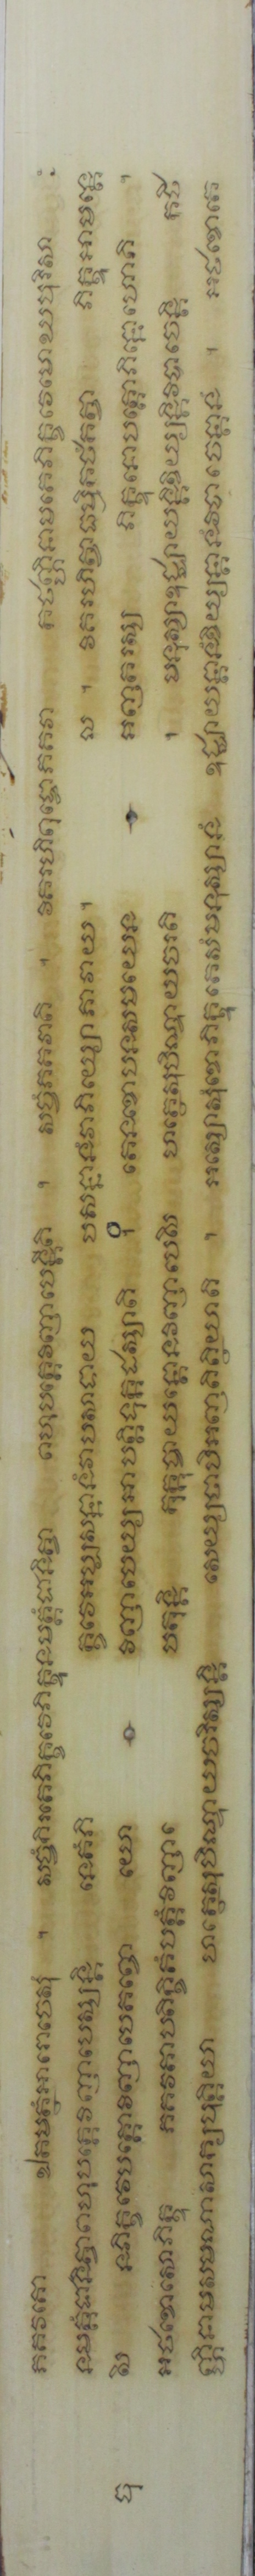 ភគវតោ ឯតមត្ថំអារោចេសុំ ។ សច្ចំកិរតេភិក្ខវេភិក្ខូនមត្តំជានិត្វា ពហូបត្តេវិញ្ញាបេន្តីតិ ។ សច្ចំភគវាតិ ។ វិគរហិពុទ្ធោភគវា កថញ្ហិនាមតេភិក្ខវេមោឃបុរិសា
នមត្តំជានិត្វាពហូបត្តេវិញ្ញាបេស្សន្តិ នេតំភិ ក្ខវេអប្បសន្នានំវាបសាទាយ បសន្នានំវាភិយ្យោភាវាយ ។ ល ។ វិគរហិត្វាធម្មិកថំកត្វា ភិក្ខូអាមន្តេ
សិ នភិក្ខវេបត្តោវិញ្ញាបេតព្ពោ យោ វិញ្ញាបេយ្យអាបត្តិទុក្កដស្សាតិ ។ តេនខោបនសមយេន អញ្ញតរស្ស ភិក្ខុនោបត្តោភិន្នោហោតិ ។
អថខោសោភិក្ខុ ភគវតាបដិក្ខិត្តំបត្តំវិញ្ញាបេ បេតុន្តិ កុក្កុច្ចាយន្តោនវិញ្ញាបេសិ ហត្ថេសុបិណ្ឌាយចរតិ ។ មនុស្សាឧជ្ឈាយន្តិខិយ្យន្តិវិបាចេន្តិ កថំ
ញ្ហិនាមសមណាសក្យបុត្តិយា ហត្ថេសុបិណ្ឌាយចរិស្សន្តិ សេយ្យថាបិអញ្ញតិត្ថិយាតិ ។ អស្សោសុំខោភិក្ខូតេសំមនុស្សានំ ឧជ្ឈាយន្តានំខិយ្យន្តានំវិបាចេន្តានំ ។ អថខោតេ